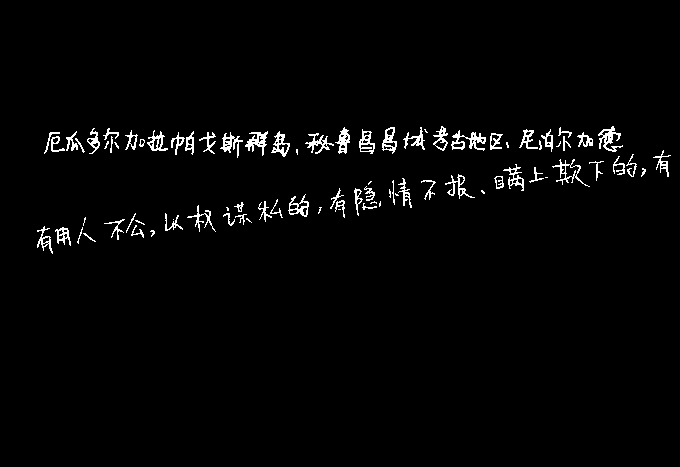 厄瓜多尔加拉帕戈斯群岛、秘鲁昌昌城考古地区、尼泊尔加德
有用人不公,以权谋私的,有隐情不报、瞒上欺下的,有